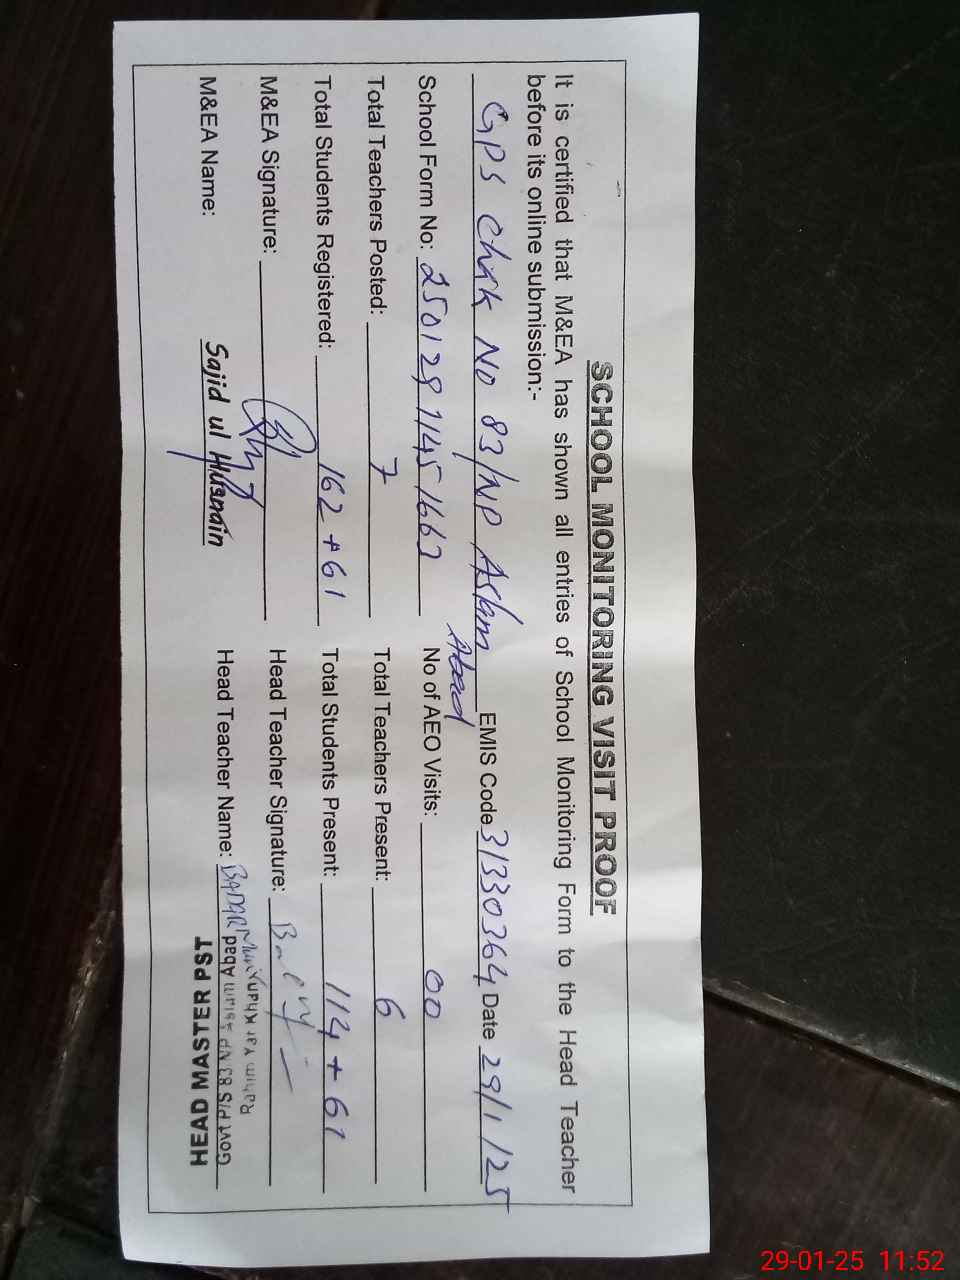 SCHOOL MONITORING VISIT PROOF
It is certified that M&EA has shown all entries of School Monitoring Form to the Head Teacher
before its online submission:-
GPS Chak No 83/NP Aslam Abad EMIS Code 31330364 Date 29/1/25
School Form No: 25012911451663 No of AEO Visits: 00
Total Teachers Posted: 7 Total Teachers Present: 6
Total Students Registered: 162+61 Total Students Present: 114+61
M&EA Signature: Head Teacher Signature:
M&EA Name: Sajid ul Husnain Head Teacher Name: BADAR Munir
HEAD MASTER PST
Govt P/S 83 NP Aslam Abad
Rahim Yar Khan
29-01-25 11:52